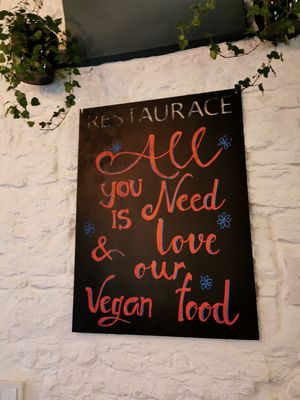 RESTAURACE
All
you Need
IS
& love
our
Vegan food